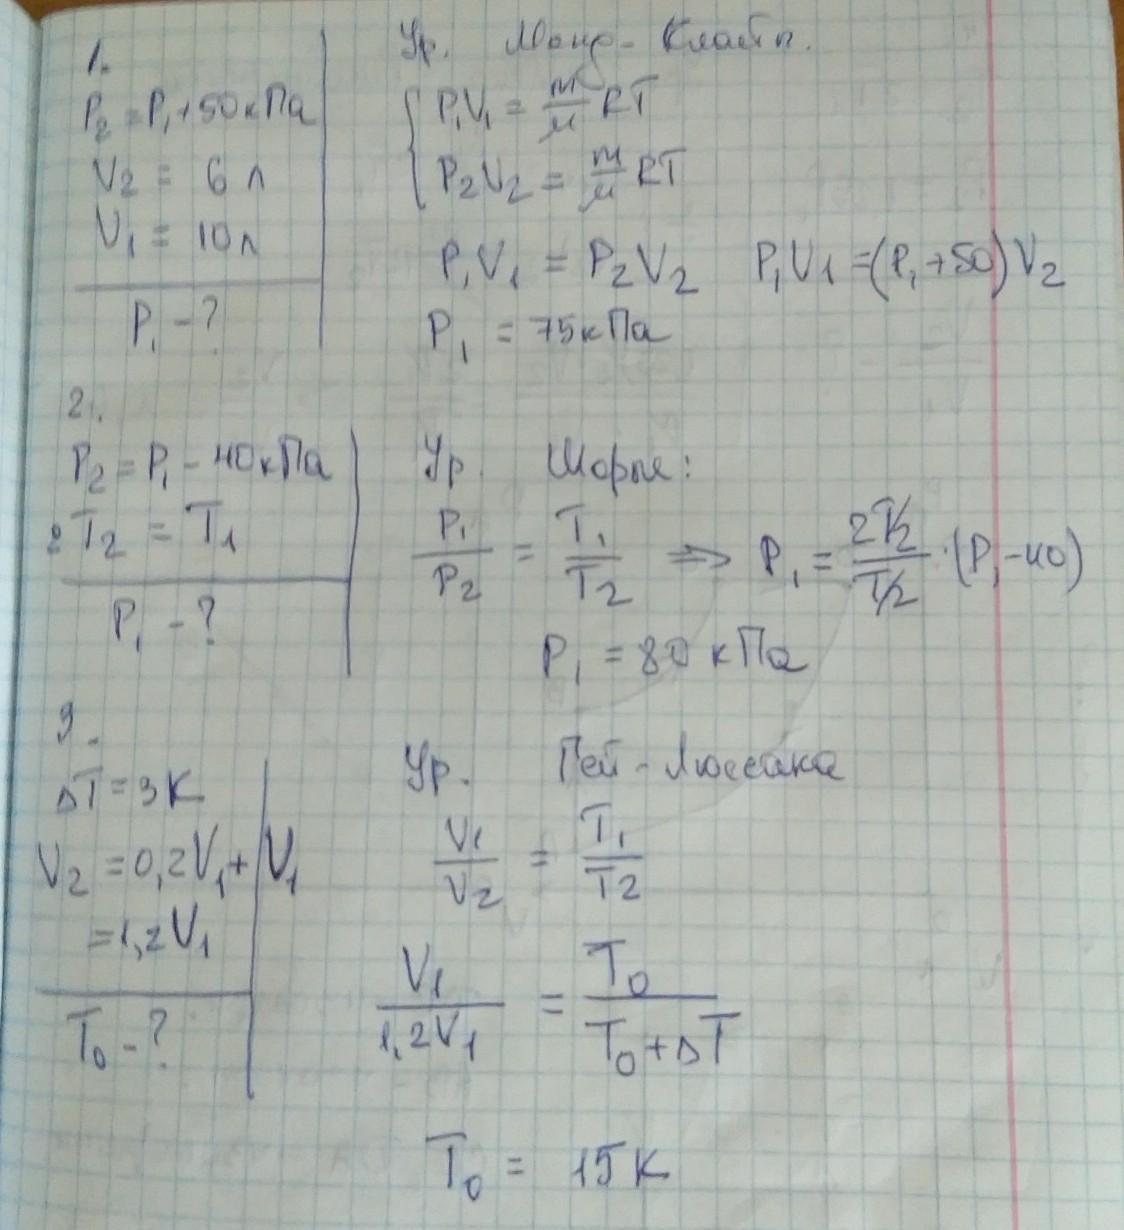 1.
P₂ = P₁ + 50 кПа
V₂ = 6 л
V₁ = 10 л
P₁ - ?
Ур. Менд - Клайп.
P₁V₁ = m/μ RT
P₂V₂ = m/μ RT
P₁V₁ = P₂V₂ P₁V₁ = (P₁ + 50) V₂
P₁ = 75 кПа
2.
P₂ = P₁ - 40 кПа
2T₂ = T₁
P₁ - ?
Ур. Шарля:
P₁/P₂ = T₁/T₂ => P₁ = 2T₂/T₂ · (P₁ - 40)
P₁ = 80 кПа
3.
ΔT = 3 К
V₂ = 0,2V₁ + V₁
= 1,2V₁
T₀ - ?
Ур. Гей - Люссака
V₁/V₂ = T₁/T₂
V₁/1,2V₁ = T₀/T₀ + ΔT
T₀ = 15 К